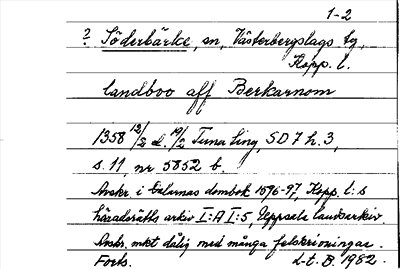 1-2
? Söderbärke, sn, Västerbergslags tg,
Kopp. l.
landboo aff Berkarnom
1358 13/2 el. 19/2 Tuna ting, SD 7 h. 3,
s. 11, nr 5852 b.
Avskr. i Dalarnas dombok 1696-97, Kopp. l:s
häradsrätts arkiv I:A I:5, Uppsala landsarkiv.
Avskr. mkt dålig med många felskrivningar.
Forts. L-t. B. 1982.